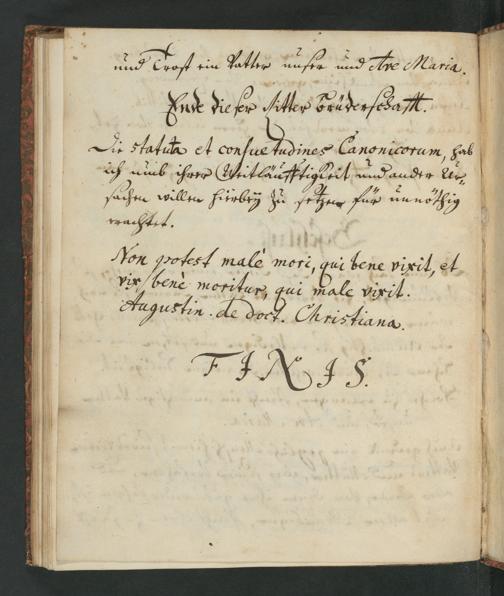 und Trost ein Vatter unser und Ave Maria.
Ende dieser Ritter Brüderschafft.
Die statuta et consuetudines Canonicorum, hab
ich umb ihrer Weitläufftigkeit und ander Ur-
sachen willen hierbey zu setzen für unnöthig
erachtet.
Non potest malè mori, qui bene vixit, et
vix benè moritur, qui male vixit.
Augustin. de doct. Christiana.
FINIS.